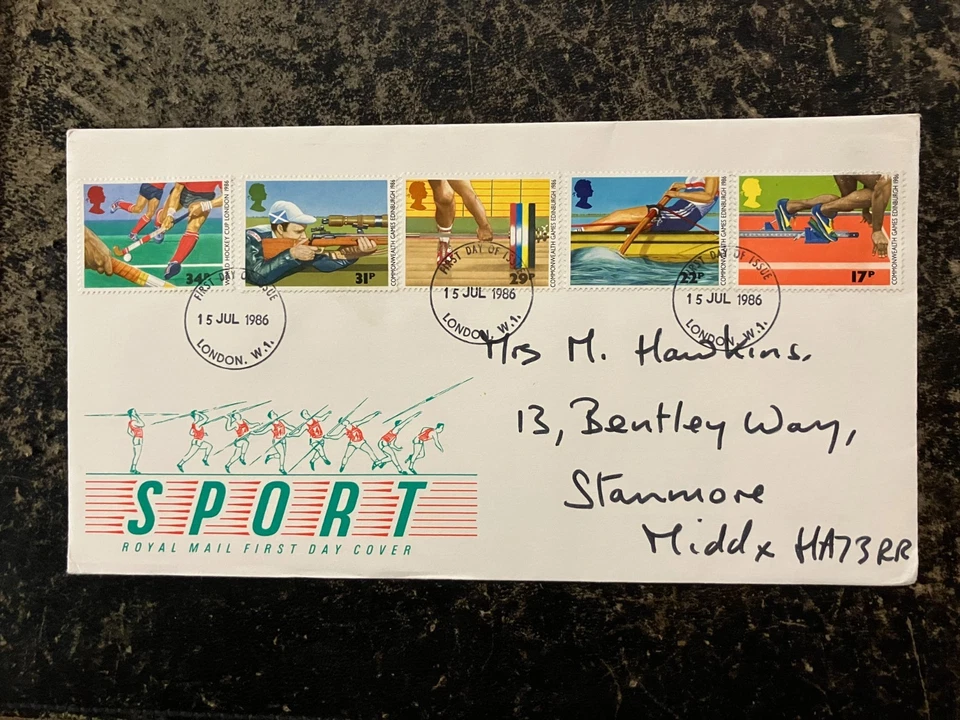 WORLD HOCKEY CUP LONDON 1986
34P
COMMONWEALTH GAMES EDINBURGH 1986
31P
COMMONWEALTH GAMES EDINBURGH 1986
29P
COMMONWEALTH GAMES EDINBURGH 1986
22P
COMMONWEALTH GAMES EDINBURGH 1986
17P
FIRST DAY OF ISSUE
15 JUL 1986
LONDON. W.1.
FIRST DAY OF ISSUE
15 JUL 1986
LONDON. W.1.
FIRST DAY OF ISSUE
15 JUL 1986
LONDON. W.1.
Mrs M. Hawkins.
13, Bentley Way,
Stanmore
Middx HA73RR
SPORT
ROYAL MAIL FIRST DAY COVER